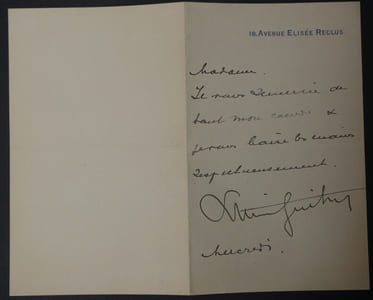 18. AVENUE ELISÉE RECLUS
Madame.
Je vous remercie de
tout mon coeur &
je vous baise les mains
respectueusement.
Lucien Guitry
Mercredi.